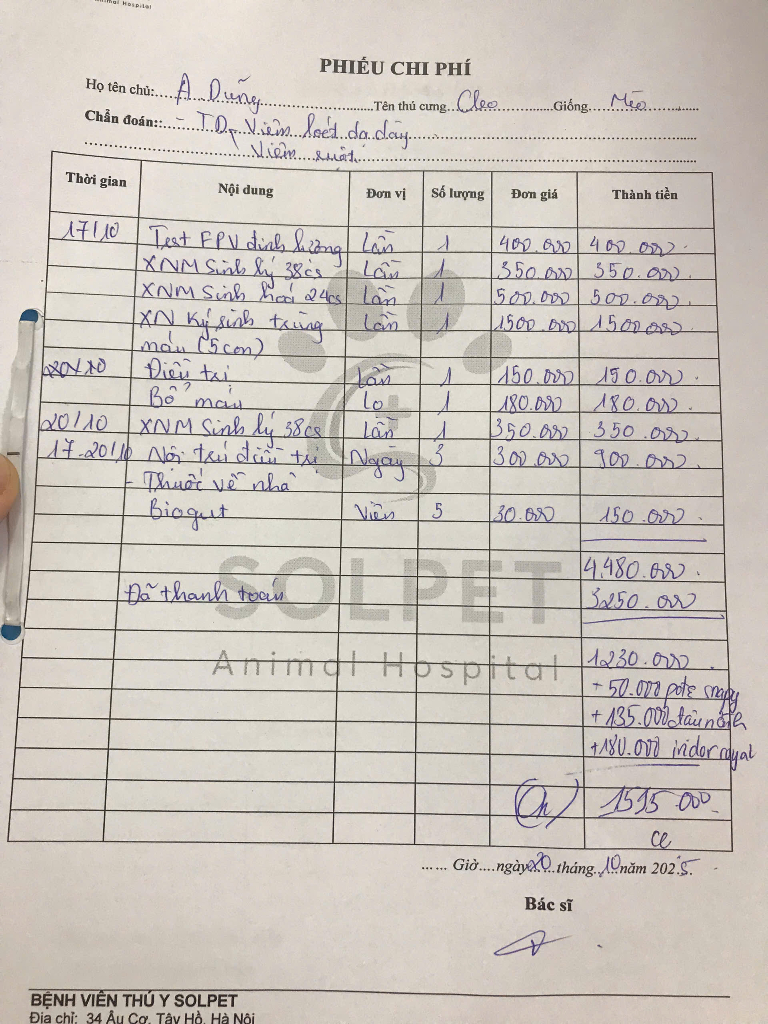 Animal Hospital
PHIẾU CHI PHÍ
Họ tên chủ: A Dũng Tên thú cưng Cleo Giống Mèo
Chẩn đoán:: - TD Viêm loét dạ dày
Viêm ruột
Thời gian Nội dung Đơn vị Số lượng Đơn giá Thành tiền
17/10 Test FPV định lượng Lần 1 400.000 400.000
XNM Sinh lý 38cs Lần 1 350.000 350.000
XNM Sinh hoá 24cs Lần 1 500.000 500.000
XN Ký sinh trùng Lần 1 1500.000 1500.000
máu (5con)
20/10 Điều trị Lần 1 150.000 150.000
Bổ máu lọ 1 180.000 180.000
20/10 XNM Sinh lý 38cs Lần 1 350.000 350.000
17-20/10 Nội trú điều trị Ngày 3 300.000 900.000
- Thuốc về nhà
Biogut Viên 5 30.000 150.000
4.480.000
Đã thanh toán 3250.000
SOLPET
Animal Hospital
1230.000
+ 50.000 pate
+ 135.000
+180.000 royal
1595 000
ck
...... Giờ....ngày 20 tháng 10 năm 2025.
Bác sĩ
BỆNH VIỆN THÚ Y SOLPET
Địa chỉ: 34 Âu Cơ, Tây Hồ, Hà Nội